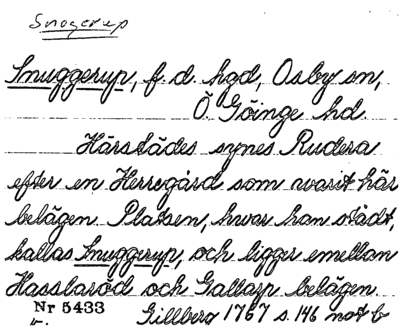 Snogerup
Snuggerup, f. d. hgd, Osby sn,
Ö. Göinge hd.
Härstädes synes Rudera
efter en Herregård som warit här
belägen. Platsen, hwar han städt,
kallas Snuggerup, och ligger emellan
Hasslaröd och Gallarp belägen
Nr 5433
Gillberg 1767 s. 146 not b